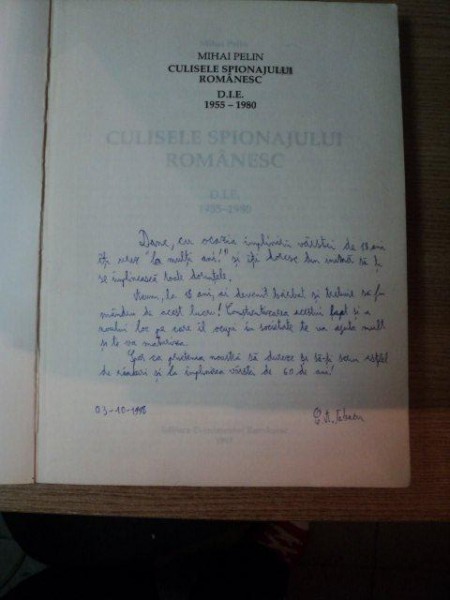 MIHAI PELIN
CULISELE SPIONAJULUI
ROMÂNESC
D.I.E.
1955 – 1980
CULISELE SPIONAJULUI
ROMÂNESC
D.I.E.
1955-1980
cu ocazia împlinirii vârstei de 18 ani
îți urez "la mulți ani!" și îți doresc din inimă să ți
se împlinească toate dorințele.
la 18 ani, ai devenit bărbat și trebuie să fii
mândru de acest lucru! Conștientizarea acestui fapt și a
noului loc pe care îl ocupi în societate te va ajuta mult
și te va maturiza.
Sper ca prietenia noastră să dureze și să-ți scriu astfel
de rânduri și la împlinirea vârstei de 60 de ani!
03-10-1998
Editura Evenimentul Românesc
1997